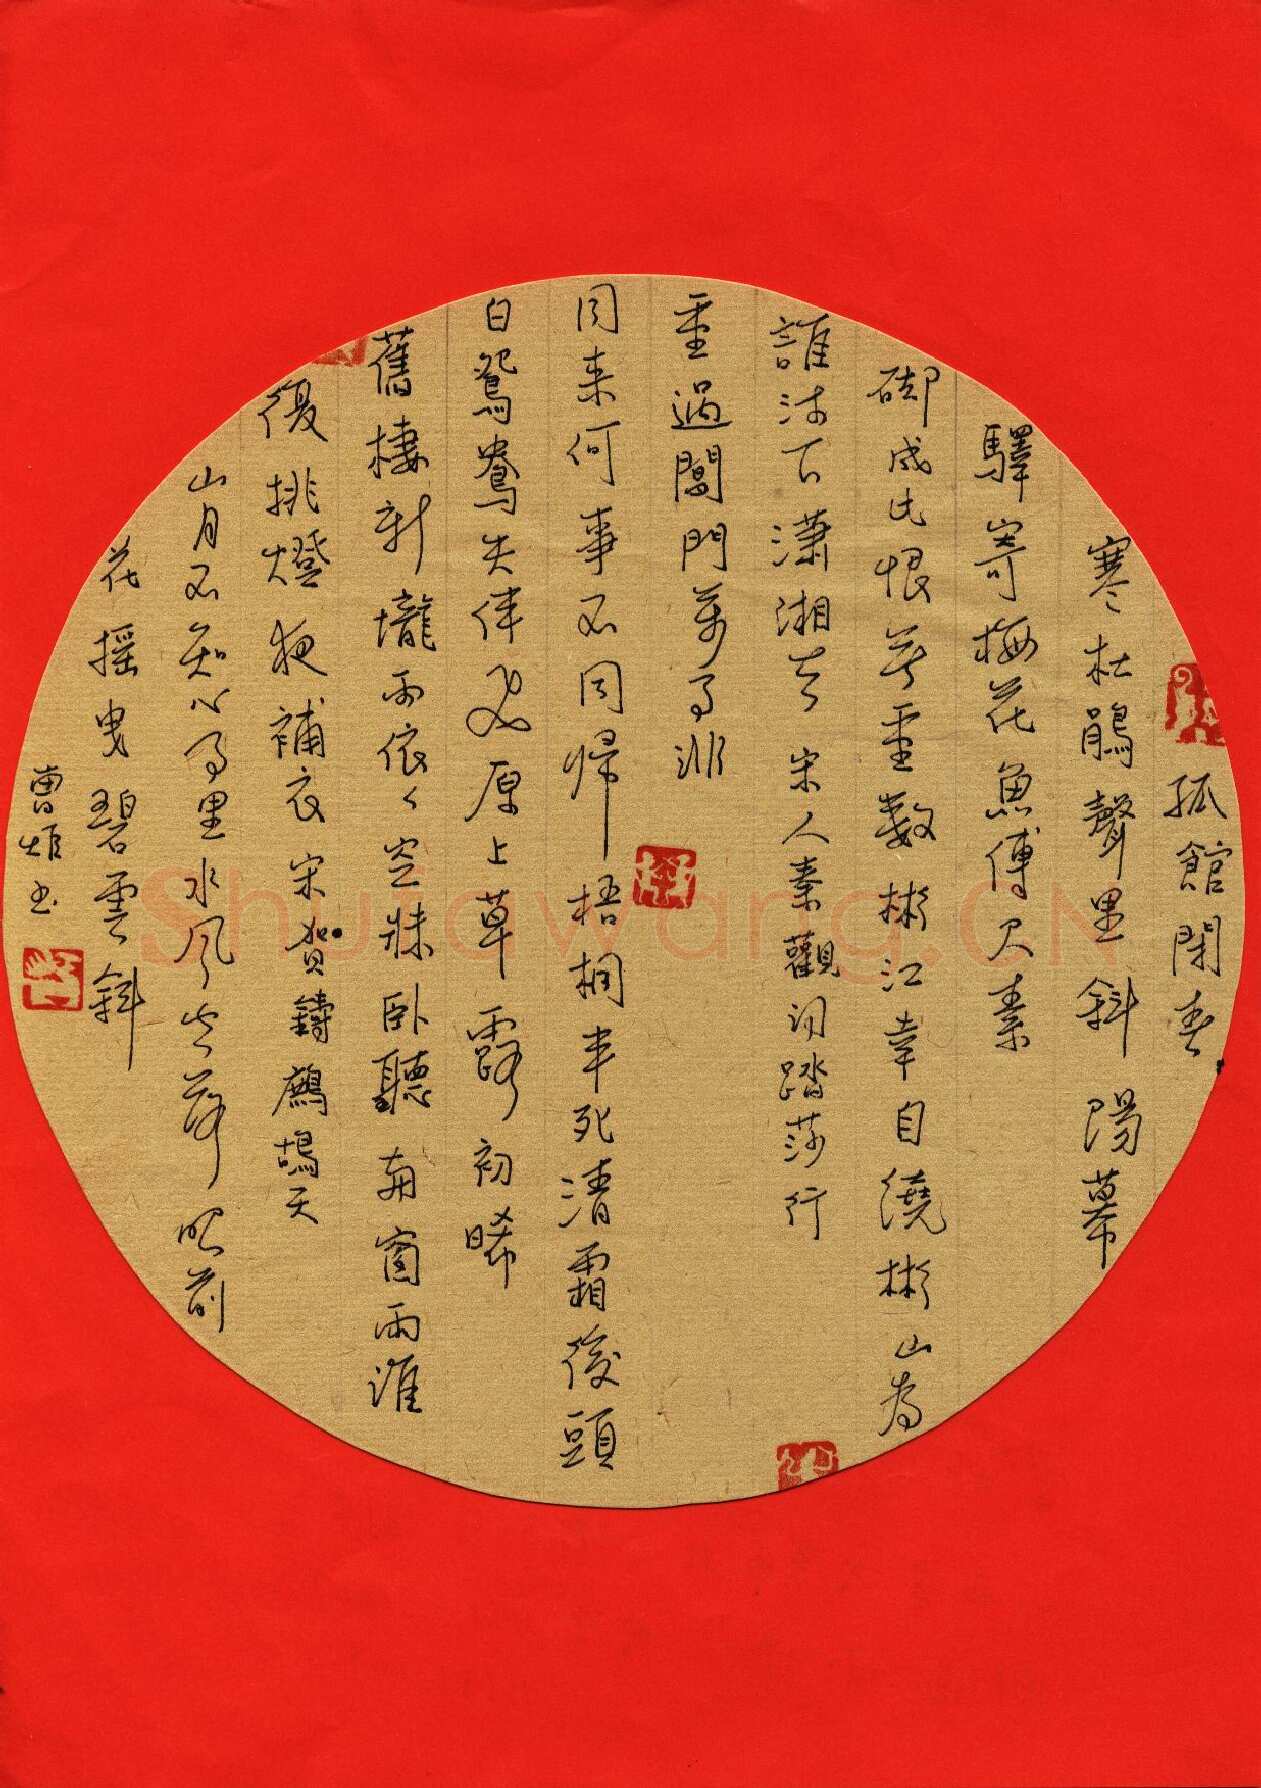 孤館閉春
寒杜鵑聲里斜陽暮
驛寄梅花魚傳尺素
砌成此恨無重數彬江幸自繞彬山為
誰流下瀟湘去宋人秦觀詞踏莎行
重過閶門萬事非
同来何事不同歸梧桐半死清霜後頭
白鴛鴦失伴飛原上草露初晞
舊棲新壠兩依々空牀卧聽南窗雨誰
復挑燈夜補衣宋賀鑄鷓鴣天
山月不知心事里水風空落眼前
花摇曳碧雲斜
曹雄书
Shufawang.CN